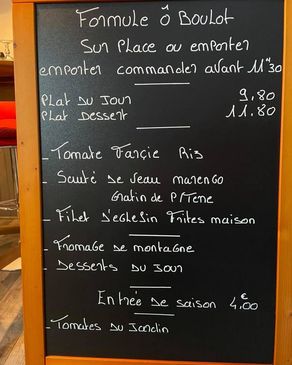 Formule Ô Boulot
Sur Place ou emporter
emporter commander avant 11H30
Plat du Jour 9,80
Plat Dessert 11.80
- Tomate Farçie Riz
- Sauté de Veau marengo
Gratin de P/Tène
- Filet d'eglefin Frites maison
- Fromage de montagne
- Desserts du Jour
Entrée de saison 4,€00
- Tomates du Jardin